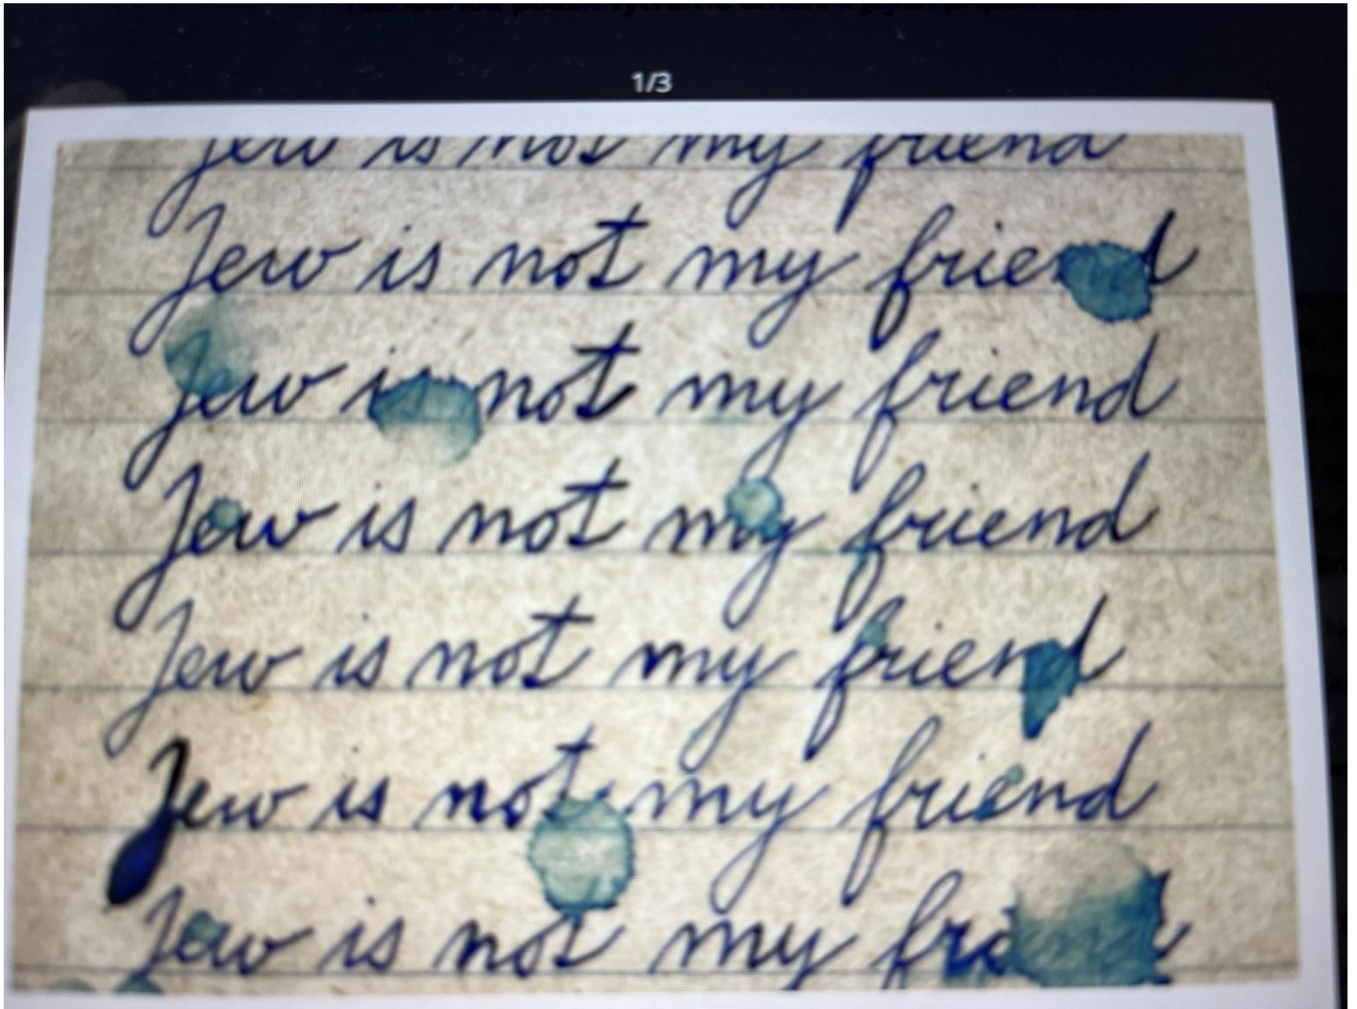 1/3
Jew is not my friend
Jew is not my friend
Jew is not my friend
Jew is not my friend
Jew is not my friend
Jew is not my friend
Jew is not my